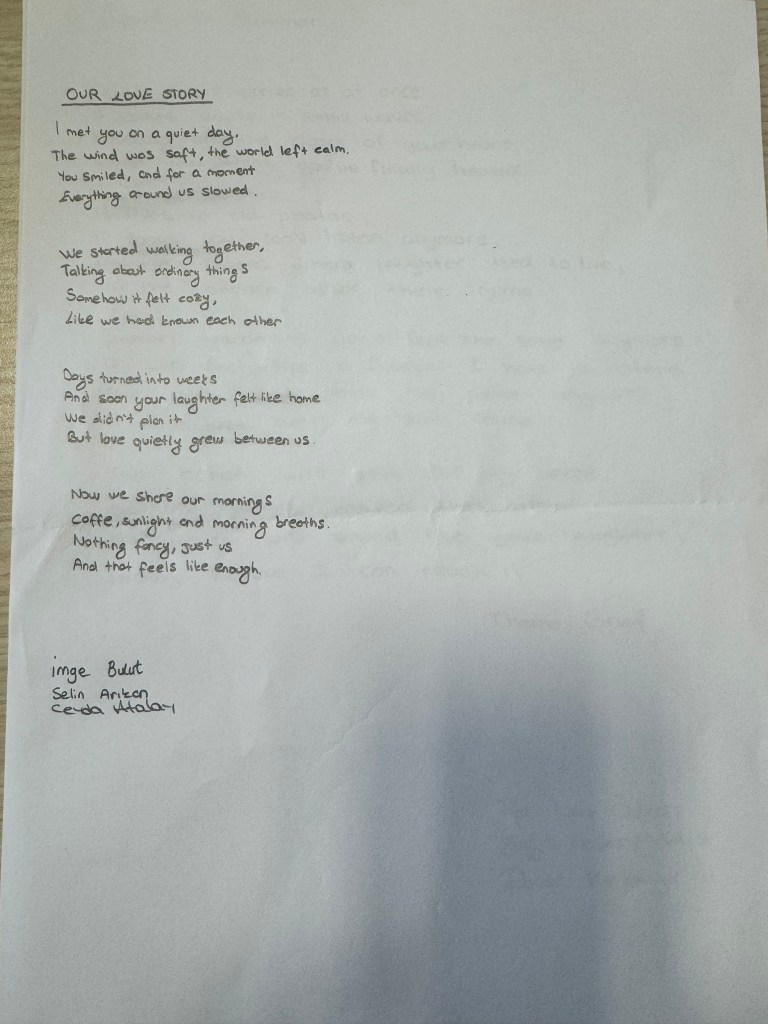 OUR LOVE STORY
I met you on a quiet day.
The wind was soft, the world left calm.
You smiled, and for a moment
Everything around us slowed.
We started walking together,
Talking about ordinary things
Somehow it felt cozy,
Like we had known each other
Days turned into weeks
And soon your laughter felt like home
We didn't plan it
But love quietly grew between us.
Now we share our mornings
Coffe, sunlight and morning breaths.
Nothing fancy, just us
And that feels like enough.
imge Bulut
Selin Arıkan
Ceyda Atalay